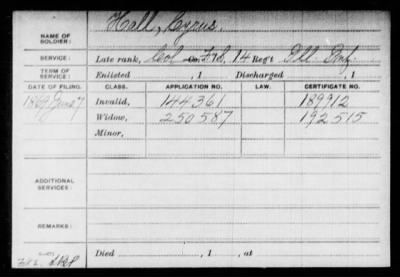 NAME OF SOLDIER: Hall, Cyrus.
SERVICE: Late rank, Col F&S, 14 Reg't Ill. Inf.
TERM OF SERVICE: Enlisted , 1 Discharged , 1
DATE OF FILING. CLASS. APPLICATION NO. LAW. CERTIFICATE NO.
1869 June 7 Invalid, 144361 189912
Widow, 250587 192515
Minor,
ADDITIONAL SERVICES:
REMARKS:
Died , 1 , at